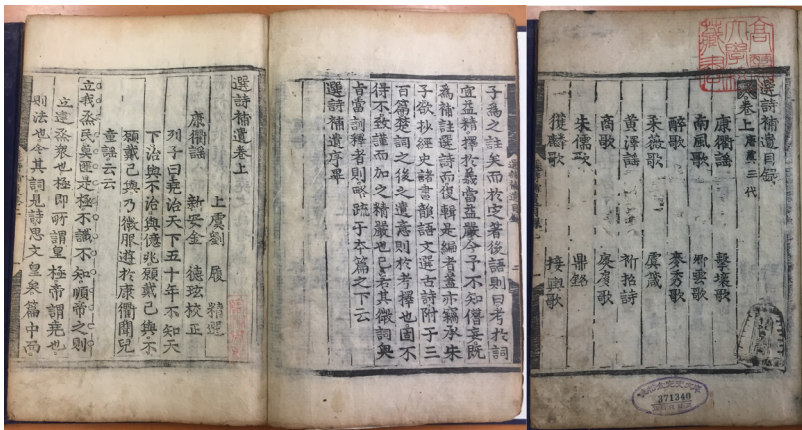 選詩補遺目錄
卷上 唐虞三代
康衢謠 擊壤歌
南風歌 卿雲歌
醉歌 麥秀歌
采薇歌 虞箴
黄澤謠 祈招詩
商歌 扊扅歌
朱儒歌 鼎銘
獲麟歌 接輿歌
371340
子為之註矣而於定著後語則曰考於詞
宜益精擇於義當益嚴今子不知僭妄既
為補註選詩而復輯是編者蓋亦竊承朱
子欲抄經史諸書韻語文選古詩附于三
百篇楚詞之後之遺意則於考擇也固不
得不致謹而加之精嚴也已若其微詞奥
旨當訓釋者則略疏于本篇之下云
選詩補遺序畢
選詩補遺卷上
上虞劉 履 精選
新安金 德玹校正
康衢謠
列子曰堯治天下五十年不知天
下治與不治與億兆願戴己與不
願戴己與乃微服遊於康衢聞兒
童謠云云
立我烝民莫匪爾極不識不知順帝之則
立逹烝衆也極即所謂皇極帝謂堯也
則法也今其詞見詩思文皇矣篇中而